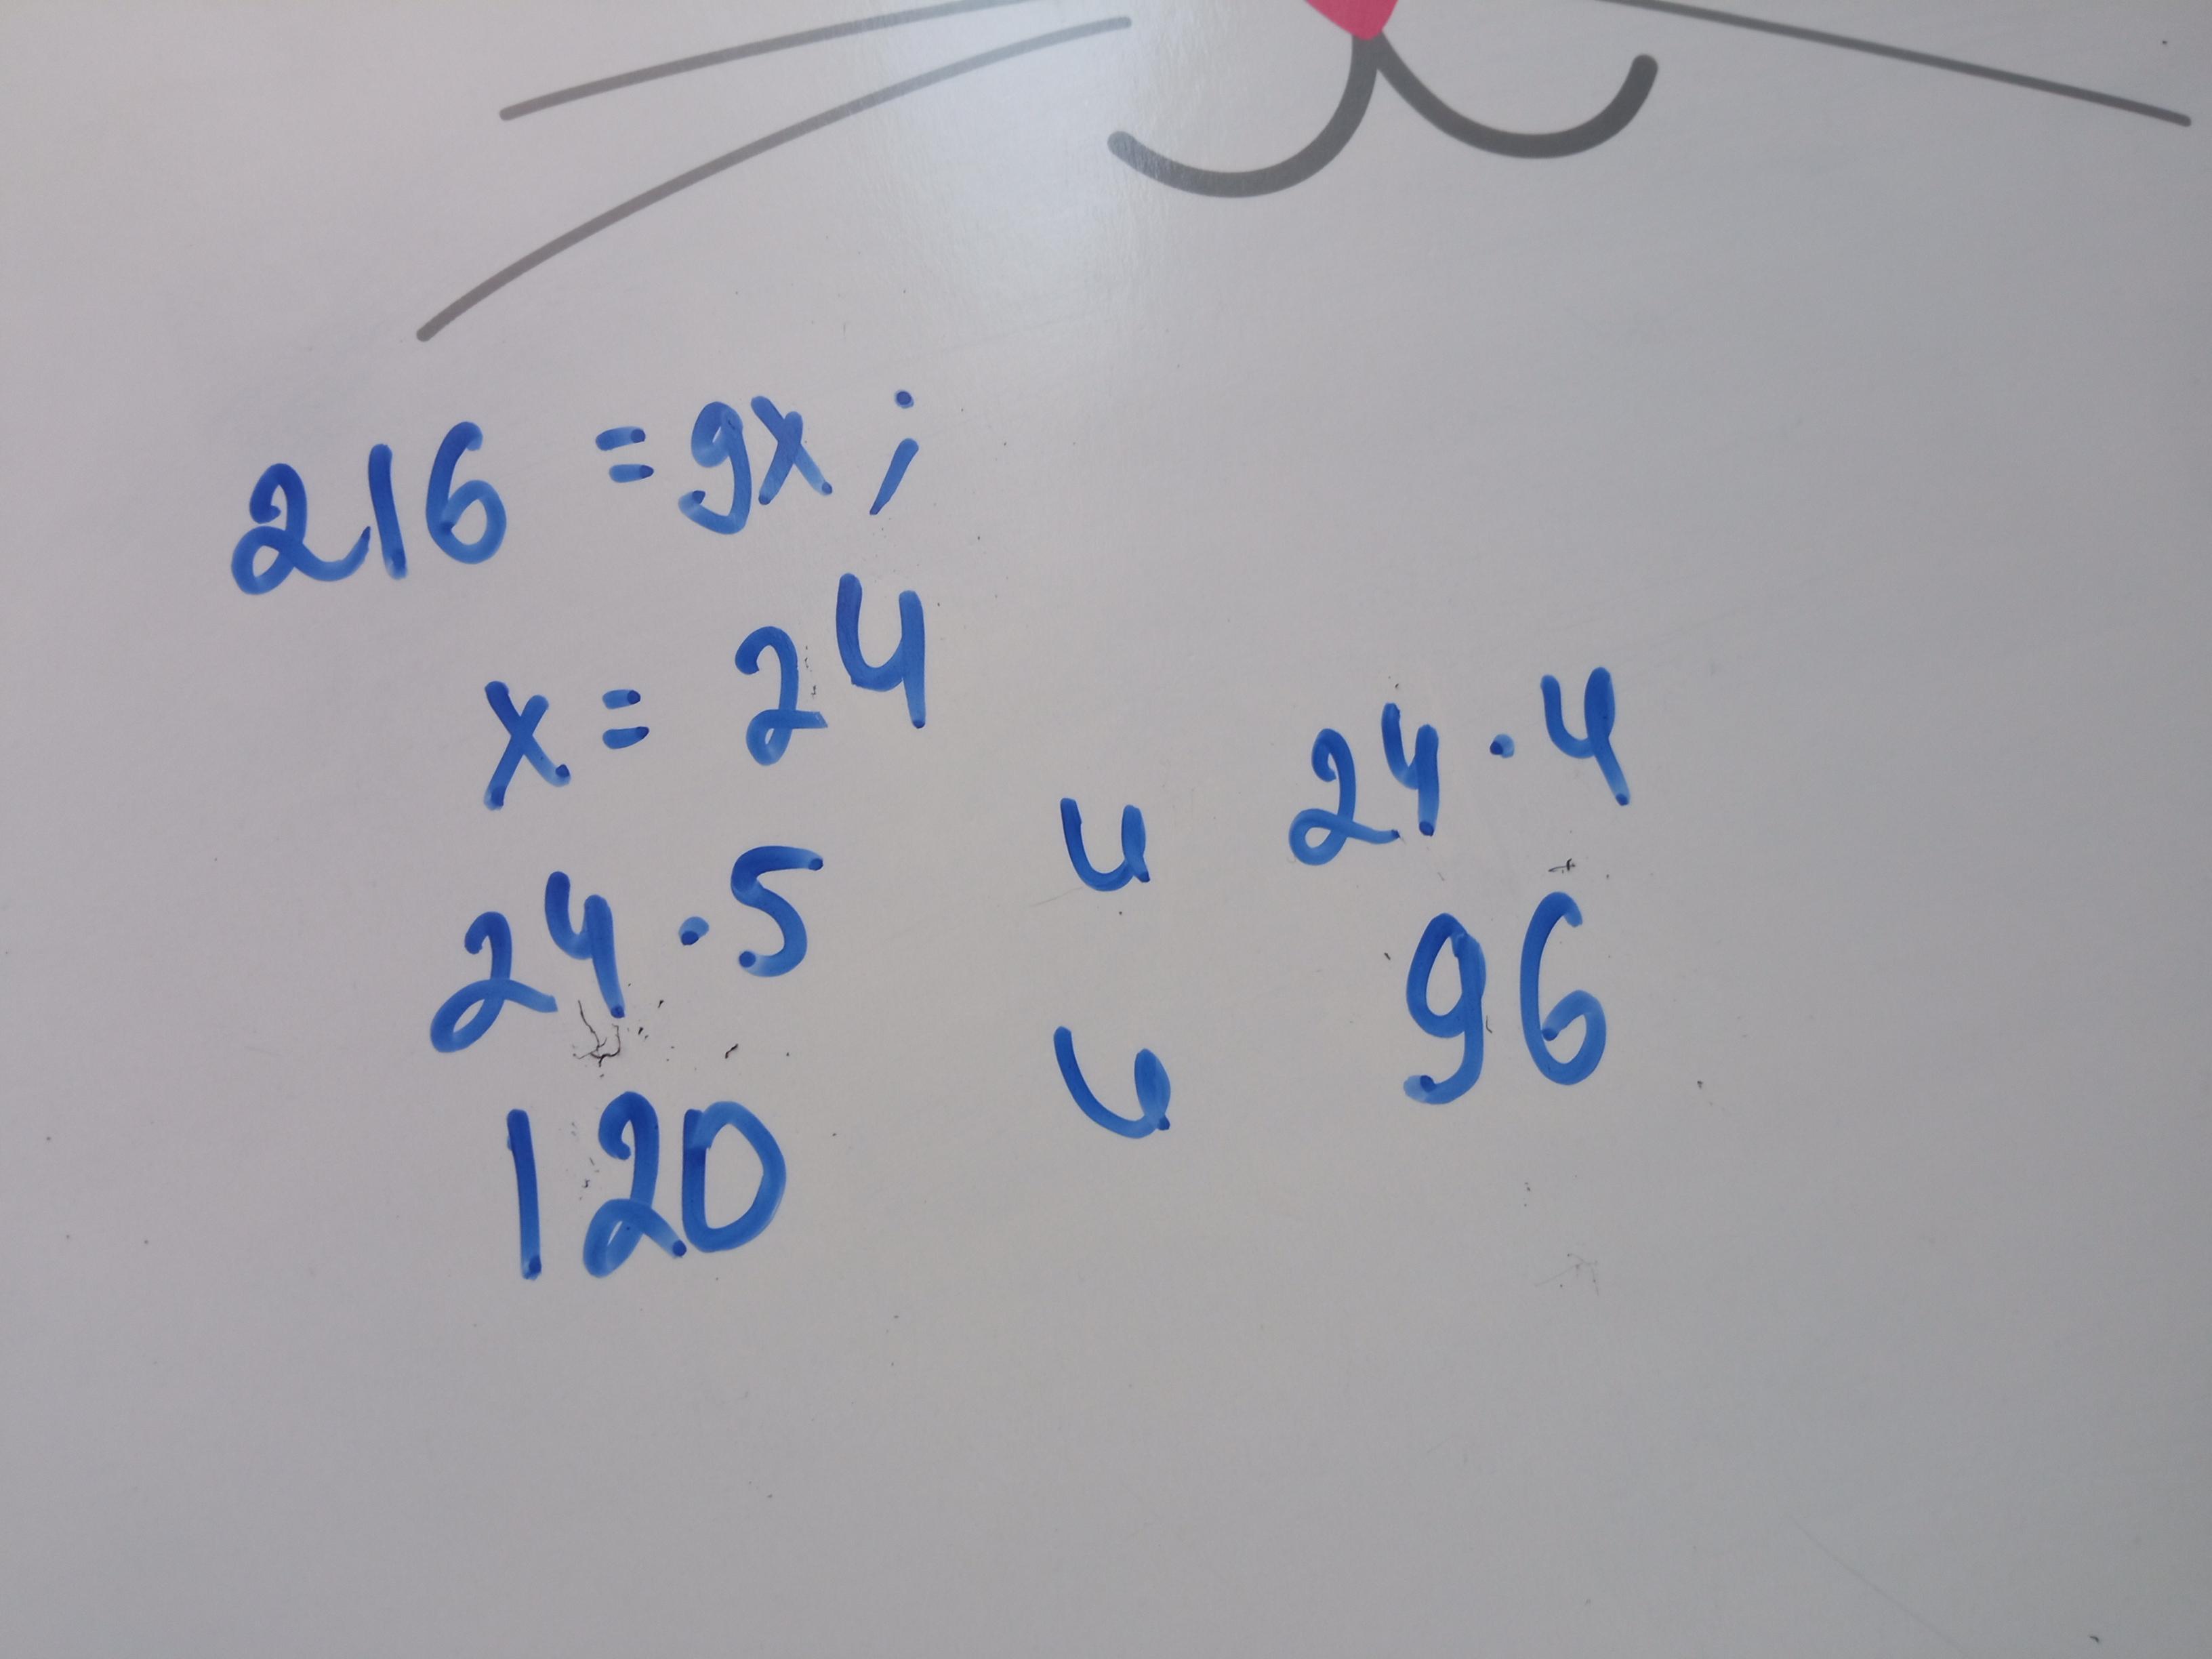 216 = 9x;
x = 24
24 · 5 и 24 · 4
120 и 96